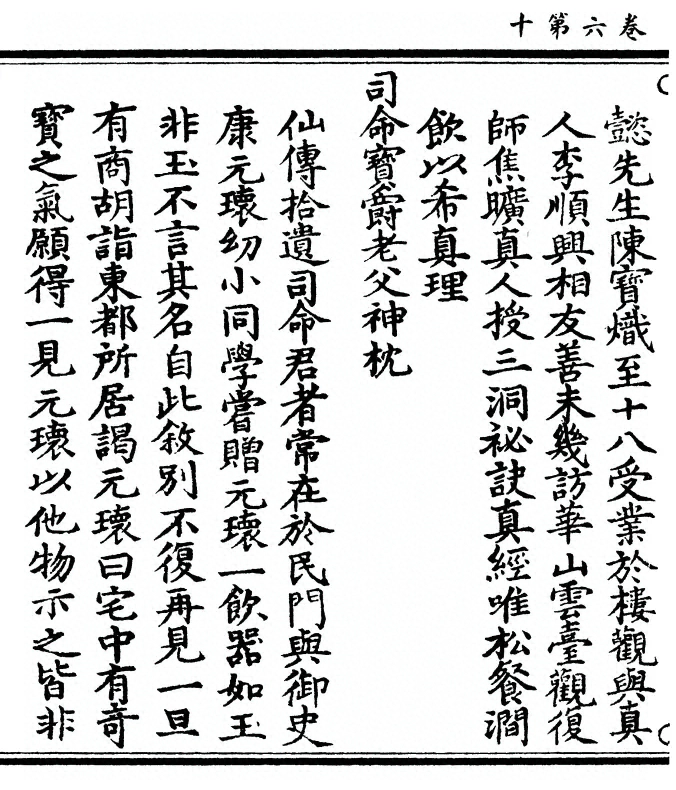 卷六第十
懿先生陳寶熾至十八受業於樓觀與真
人李順興相友善未幾訪華山雲臺觀復
師焦曠真人授三洞祕訣真經唯松餐澗
飲以希真理
司命寶爵老父神枕
仙傳拾遺司命君者常在於民門與御史
康元瓌幼小同學嘗贈元瓌一飲器如玉
非玉不言其名自此敘別不復再見一旦
有商胡詣東都所居謁元瓌曰宅中有奇
寶之氣願得一見元瓌以他物示之皆非